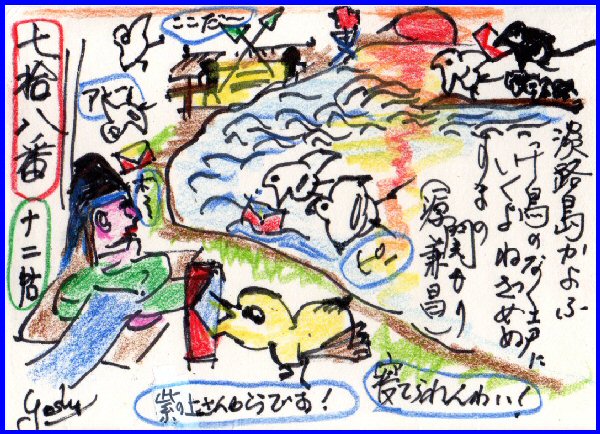 七拾八番
十二帖
ここだ〜
淡路島かよふ
千鳥のなく声に
いくよねざめぬ
すまの
関もり
(源兼昌)
ピー
寝てられんわい!
紫の上さんからです!